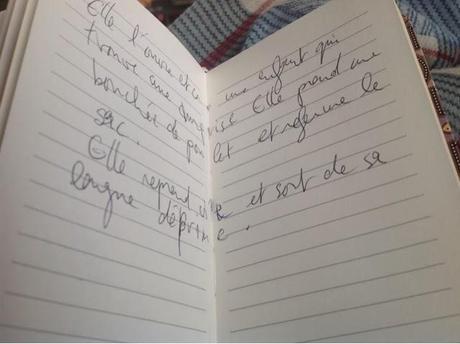 Elle l'ouvre et une enfant qui
trouve une Elle prend une
bouchée de poulet et referme le
sac.
Elle reprend et sort de sa
longue déprime.